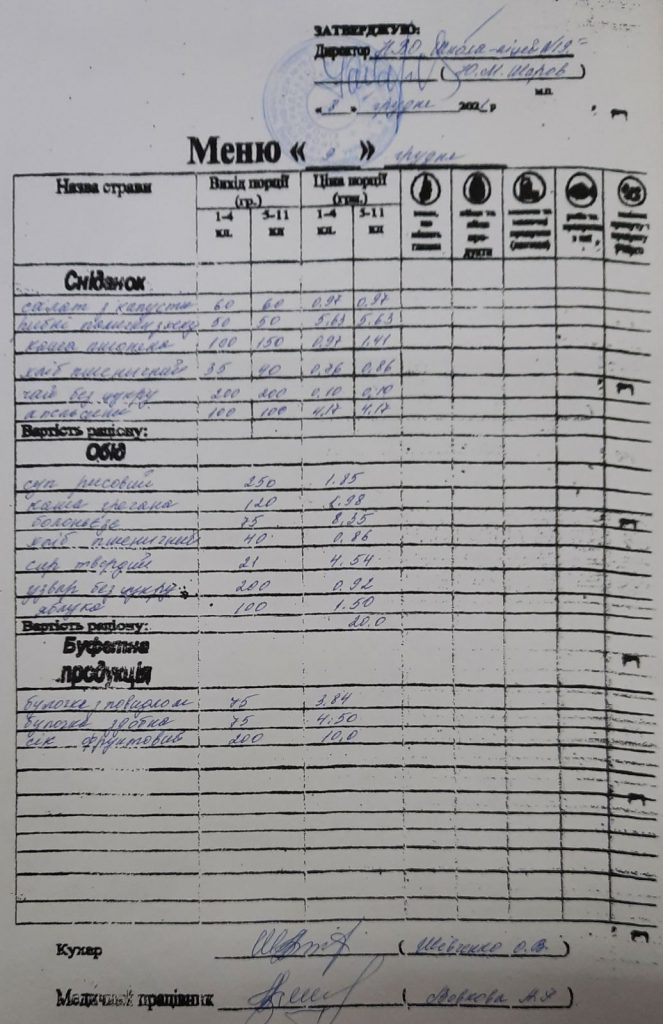 ЗАТВЕРДЖУЮ:
Директор НВО "Школа-ліцей №19"
( Ю.М. Шаров )
м.п.
« 8 » грудня 2021 р
Меню « 9 » грудня
Назва страви Вихід порції (гр.) Ціна порції (грн.)
1-4 кл. 5-11 кл 1-4 кл. 5-11 кл
Сніданок
салат з капусти 60 60 0,97 0,97
рибні палички 50 50 5,63 5,63
каша пшенична 100 150 0,97 1,41
хліб пшеничний 35 40 0,76 0,86
чай без цукру 200 200 0,10 0,10
апельсин 100 100 4,17 4,17
Вартість раціону:
Обід
суп рисовий 250 1.85
каша гречана 120 1.98
болоньєзе 75 8,35
хліб пшеничний 40 0.86
сир твердий 21 4.54
узвар без цукру 200 0.92
яблуко 100 1.50
Вартість раціону: 20.0
Буфетна
продукція
булочка з повидлом 75 3.84
булочка здобна 75 4.50
сік фруктовий 200 10,0
Кухар ( Шевченко О.В. )
Медичний працівник ( Вовкова )